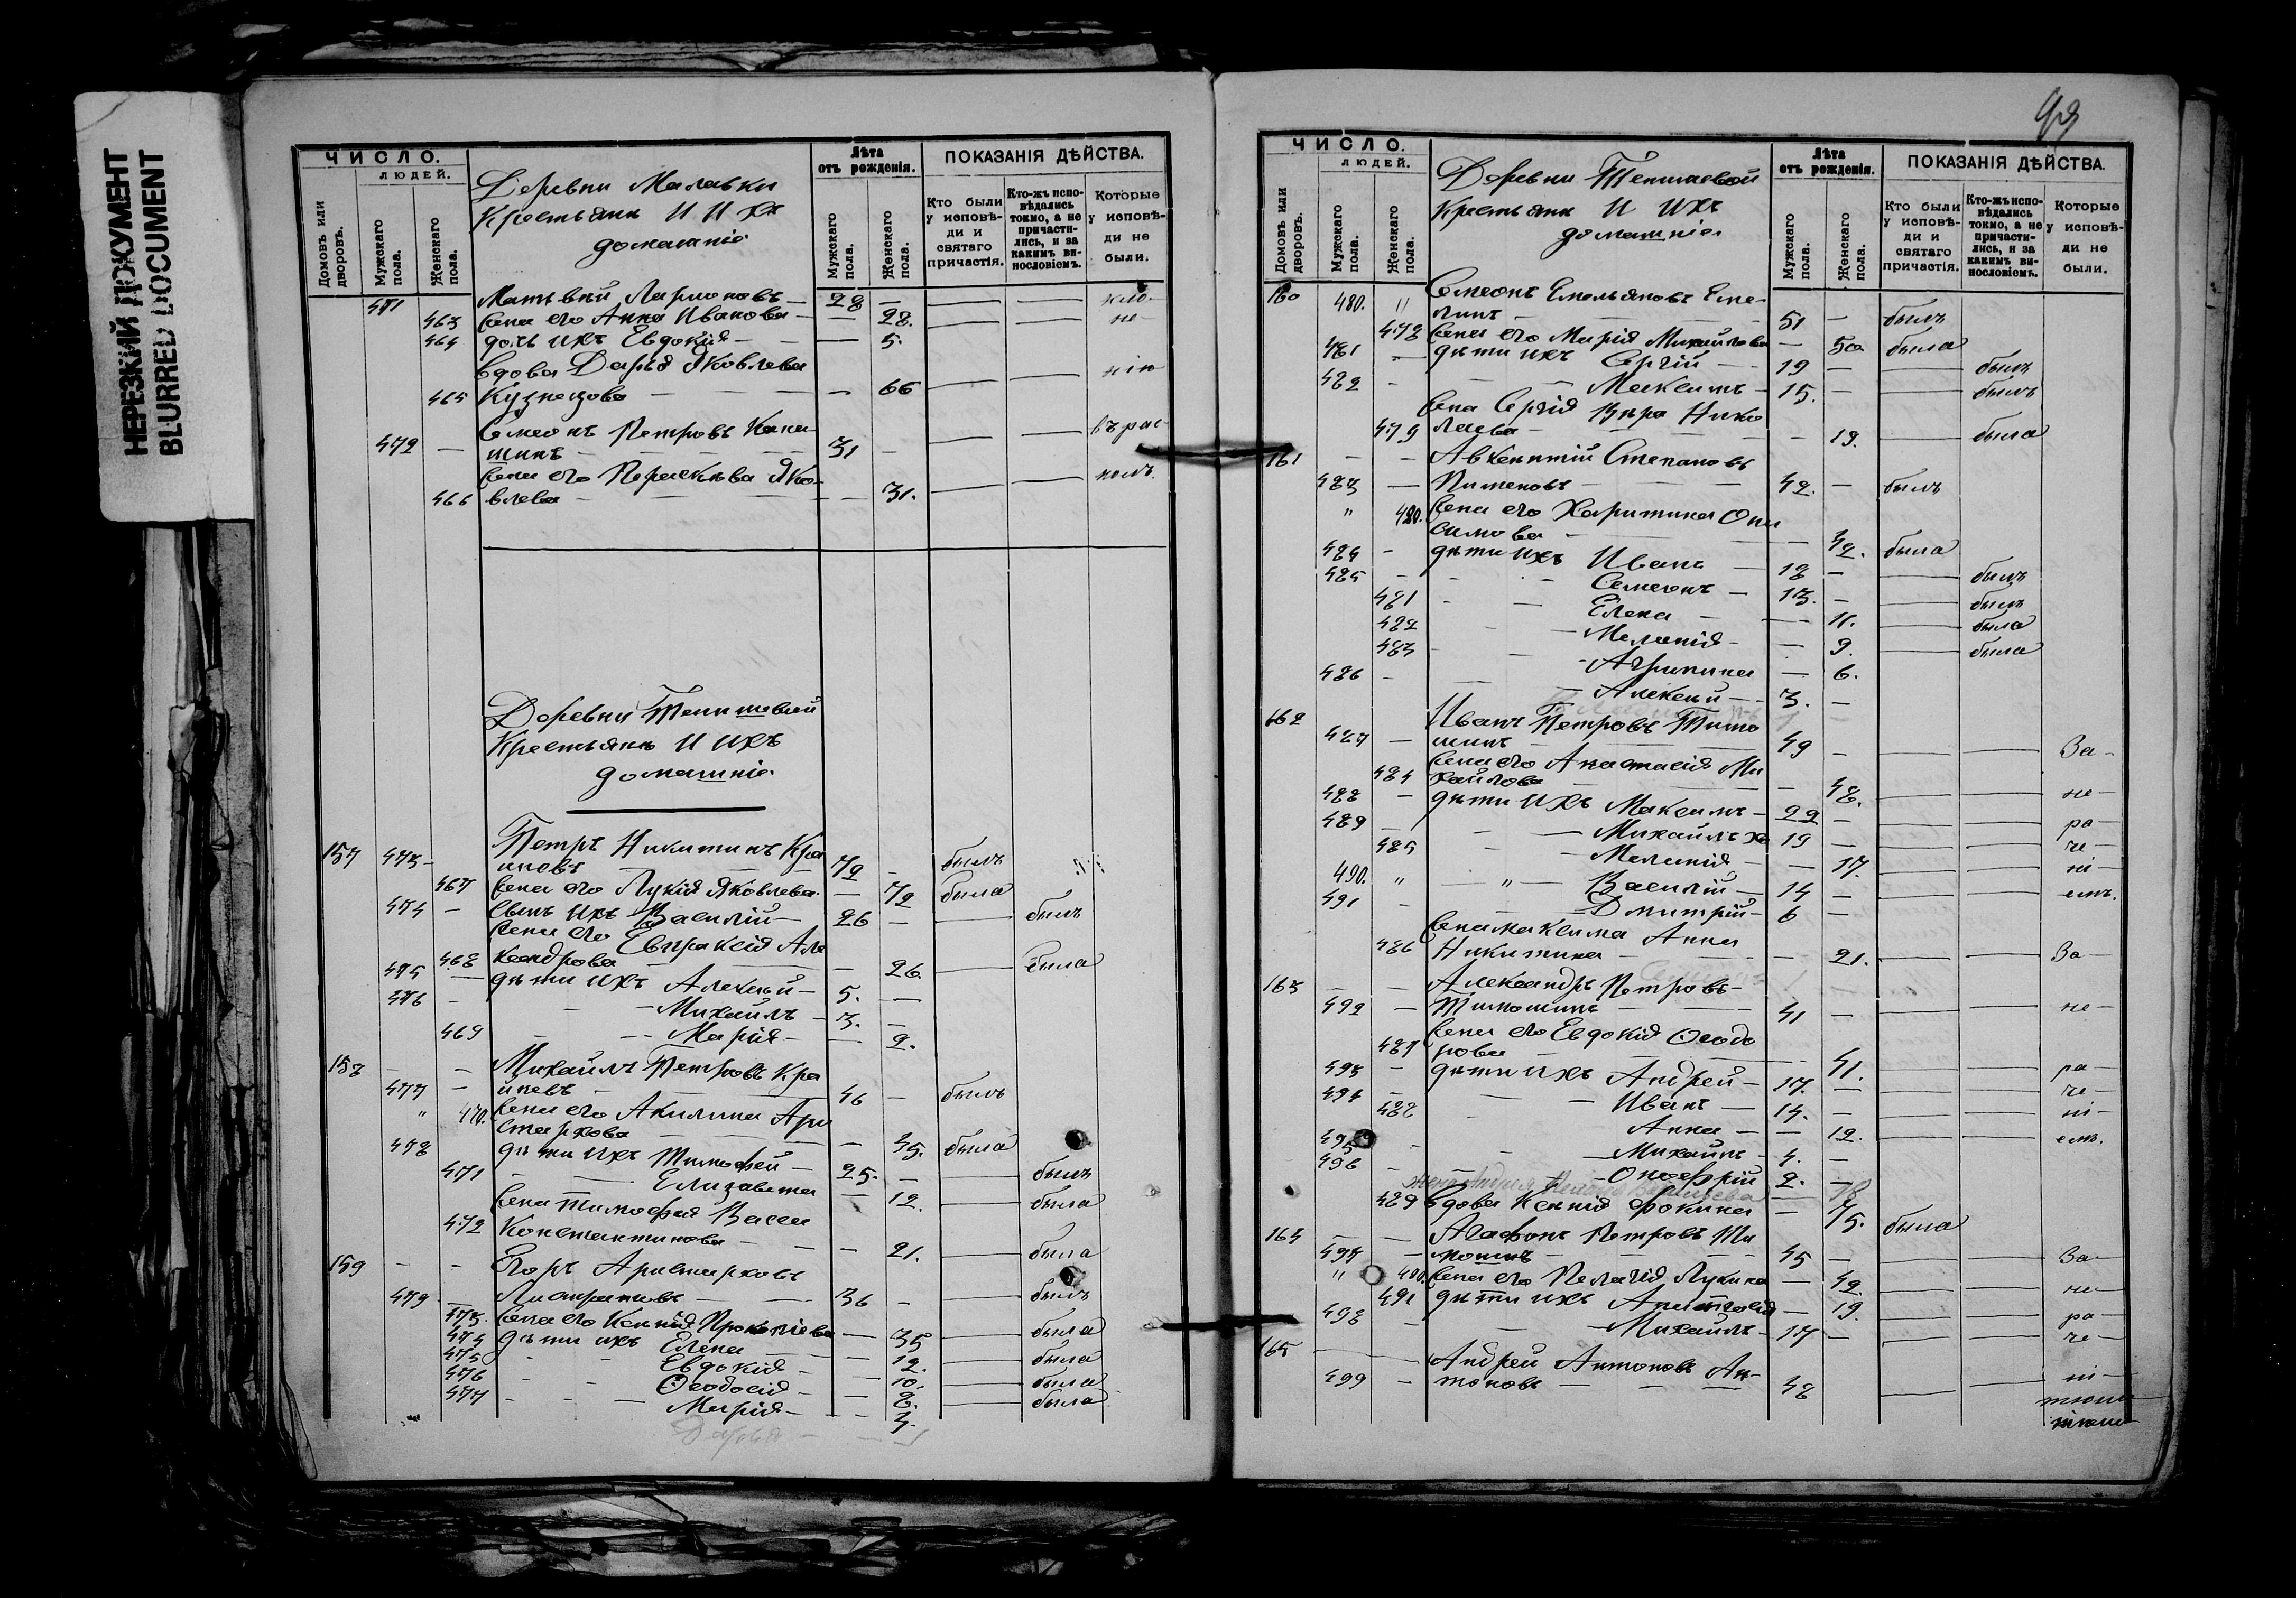 НЕРЕЗКИЙ ДОКУМЕНТ
BLURRED DOCUMENT
ЧИСЛО.
ЛЮДЕЙ.
Домовъ или дворовъ.
Мужскаго пола.
Женскаго пола.
Деревни Малавки
Крестьяне и ихъ
домашніе
Лѣта
отъ рожденія.
Мужскаго пола.
Женскаго пола.
ПОКАЗАНІЯ ДѢЙСТВА.
Кто были у исповѣди и святаго причастія.
Кто-жъ исповѣдались токмо, а не причастились, и за какимъ винословіемъ.
Которые у исповѣди не были.
471 Матѳей Ларионовъ — 28 —
463 жена его Анна Иванова — 28. не
464 дочь ихъ Евдокія — 5.
вдова Дарья Яковлева
465 Кузнецова — 66
Симеонъ Петровъ Капи
472 — шинъ — 31 — въ рас
жена его Параскева Яко
466 влева — 31.
Деревни Тепишевой
Крестьяне и ихъ
домашніе
Петръ Никитинъ Кра
157 473 — иновъ — 72 — былъ
467 жена его Лукія Яковлева — 72 была
474 — сынъ ихъ Василій — 26 — былъ
жена его Евпраксія Але
468 ксандрова — 26. была
475 — дѣти ихъ Алексѣй — 5. —
476 — Михаилъ — 3. —
469 — Марія — 2.
158 — — Михаилъ Петровъ Кра
477 — иневъ — 46 — былъ
" 470. жена его Акилина Ари
стархова — 45. была
478 дѣти ихъ Тимофей — 25. — былъ
471 — Елизавета — 12. была
жена Тимофея Васса
472 Константинова — 21. была
159 — — Егоръ Аристарховъ
479 — 36 — былъ
473. жена его Ксенія Прокопіева — 35 была
474 дѣти ихъ Елена — 12. была
475 — Евдокія — 10. была
476 — Ѳеодосія — 8. была
477 — Марія — 3.
93
ЧИСЛО.
ЛЮДЕЙ.
Домовъ или дворовъ.
Мужскаго пола.
Женскаго пола.
Деревни Тепишевой
Крестьяне и ихъ
домашніе
Лѣта
отъ рожденія.
Мужскаго пола.
Женскаго пола.
ПОКАЗАНІЯ ДѢЙСТВА.
Кто были у исповѣди и святаго причастія.
Кто-жъ исповѣдались токмо, а не причастились, и за какимъ винословіемъ.
Которые у исповѣди не были.
160 480. " Симеонъ Емельяновъ Еме
линъ — 51 — былъ
478 жена его Марія Михайлова — 50 была
481 — дѣти ихъ Сергій — 19 — былъ
482 — Максимъ — 15. — былъ
жена Сергія Вѣра Нико
479 лаева — 19. была
161 — — Авксентій Степановъ
483 — Пименовъ — 42. — былъ
" 480. жена его Харитина Они
симова — 42. была
484 — дѣти ихъ Иванъ — 18 — былъ
485 — Симеонъ — 13. — былъ
481 — Елена — 11. была
482 — Меланія — 9. была
483 — Агрипина — 6.
486 — Алексѣй — 3. —
162 Иванъ Петровъ Тимо
487 — шинъ — 49 — За
484 жена его Анастасія Ми
хайлова — 48. не
488 — дѣти ихъ Максимъ — 22 — ра
489 — Михаилъ — 19 — че
485 — Меланія — 17. ні
490. " " — Василій — 14 — емъ.
491 — Дмитрій — 6 —
жена Максима Анна
486 Никитина — 21. За
163 — — Александръ Петровъ
492 — Тимошинъ — 41 — не
жена его Евдокія Ѳеодо
487 рова — 41. ра
493 — дѣти ихъ Андрей — 17. — че
494 — Иванъ — 14. — ні
488 — Анна — 12. емъ.
495 — Михаилъ — 4. —
496 — Онофрій — 2. —
489 вдова Ксенія Фокина — 75. была
164 — — Агафонъ Петровъ Ти
497 — мошинъ — 45 — За
" 490. жена его Пелагія Лукина — 42. не
491 дѣти ихъ Анастасія — 19. ра
498 — Михаилъ — 17 — че
165 Андрей Антоновъ Ан
499 — тоновъ — 48 ні